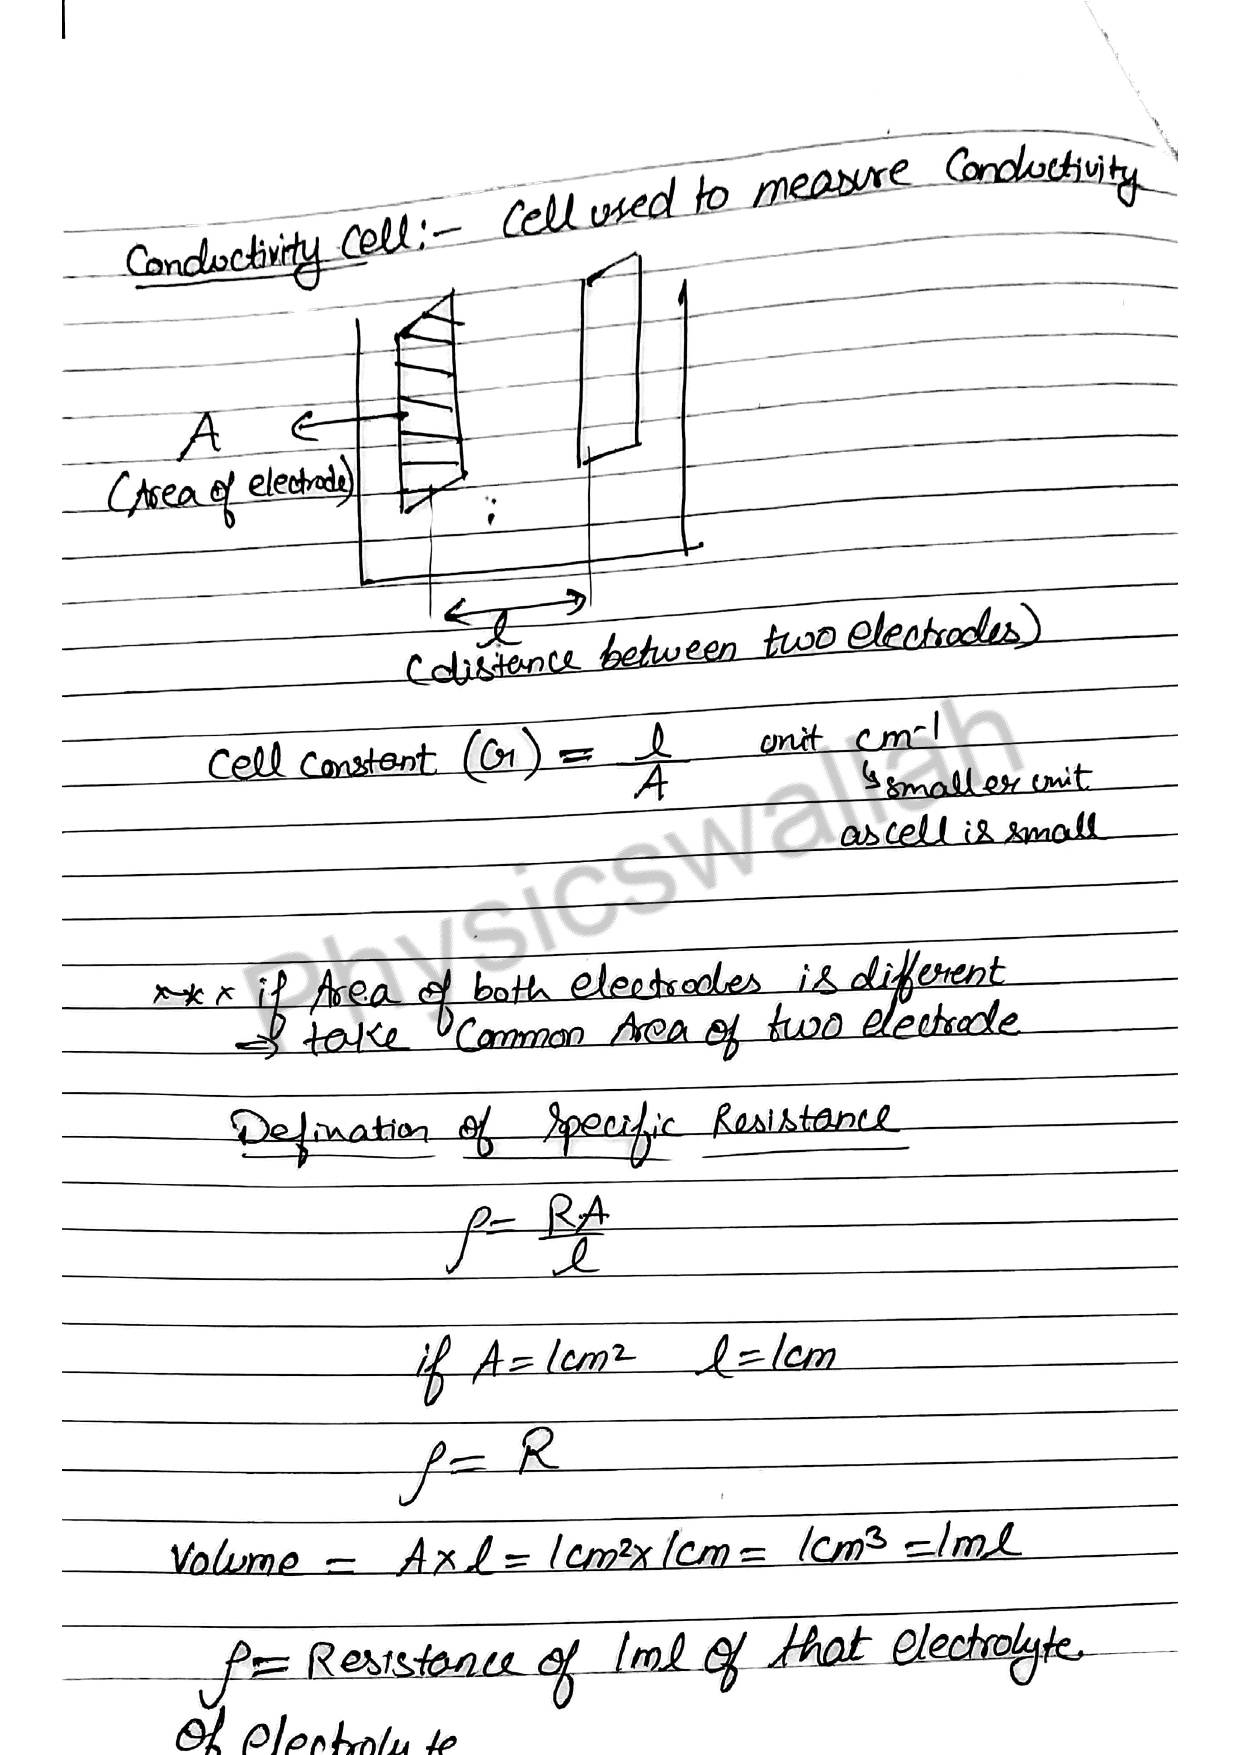 Conductivity Cell:- Cell used to measure Conductivity
A
(Area of electrode)
l
(distance between two electrodes)
Cell Constant (G) = l/A unit cm-1
↳ smaller unit
as cell is small
Physicswallah
*** if Area of both electrodes is different
⇒ take Common Area of two electrode
Defination of Specific Resistance
ρ = RA/l
if A = 1cm² l = 1cm
ρ = R
Volume = A x l = 1cm² x 1cm = 1cm³ = 1ml
ρ = Resistance of 1ml of that electrolyte
of electrolyte